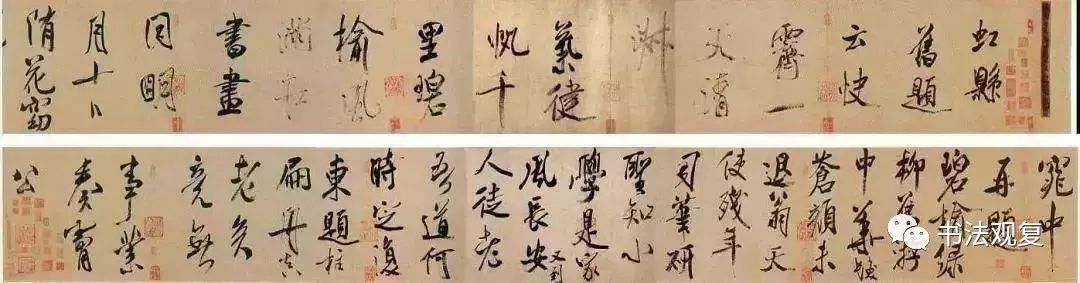 虹縣
舊題
云快
霽一
天清
淑
氣健
帆千
里碧
榆風
滿舡
書畫
同明
月十日
隨花窈
窕中
再題
碧榆綠
柳舊游
中華髮
蒼顏未
退翁天
使殘年
司筆研
聖知小
學是家
風長安又到
人徒老
吾道何
時定復
東題柱
扁舟真
老矣
竟無
事業
奏膚
公
书法观复